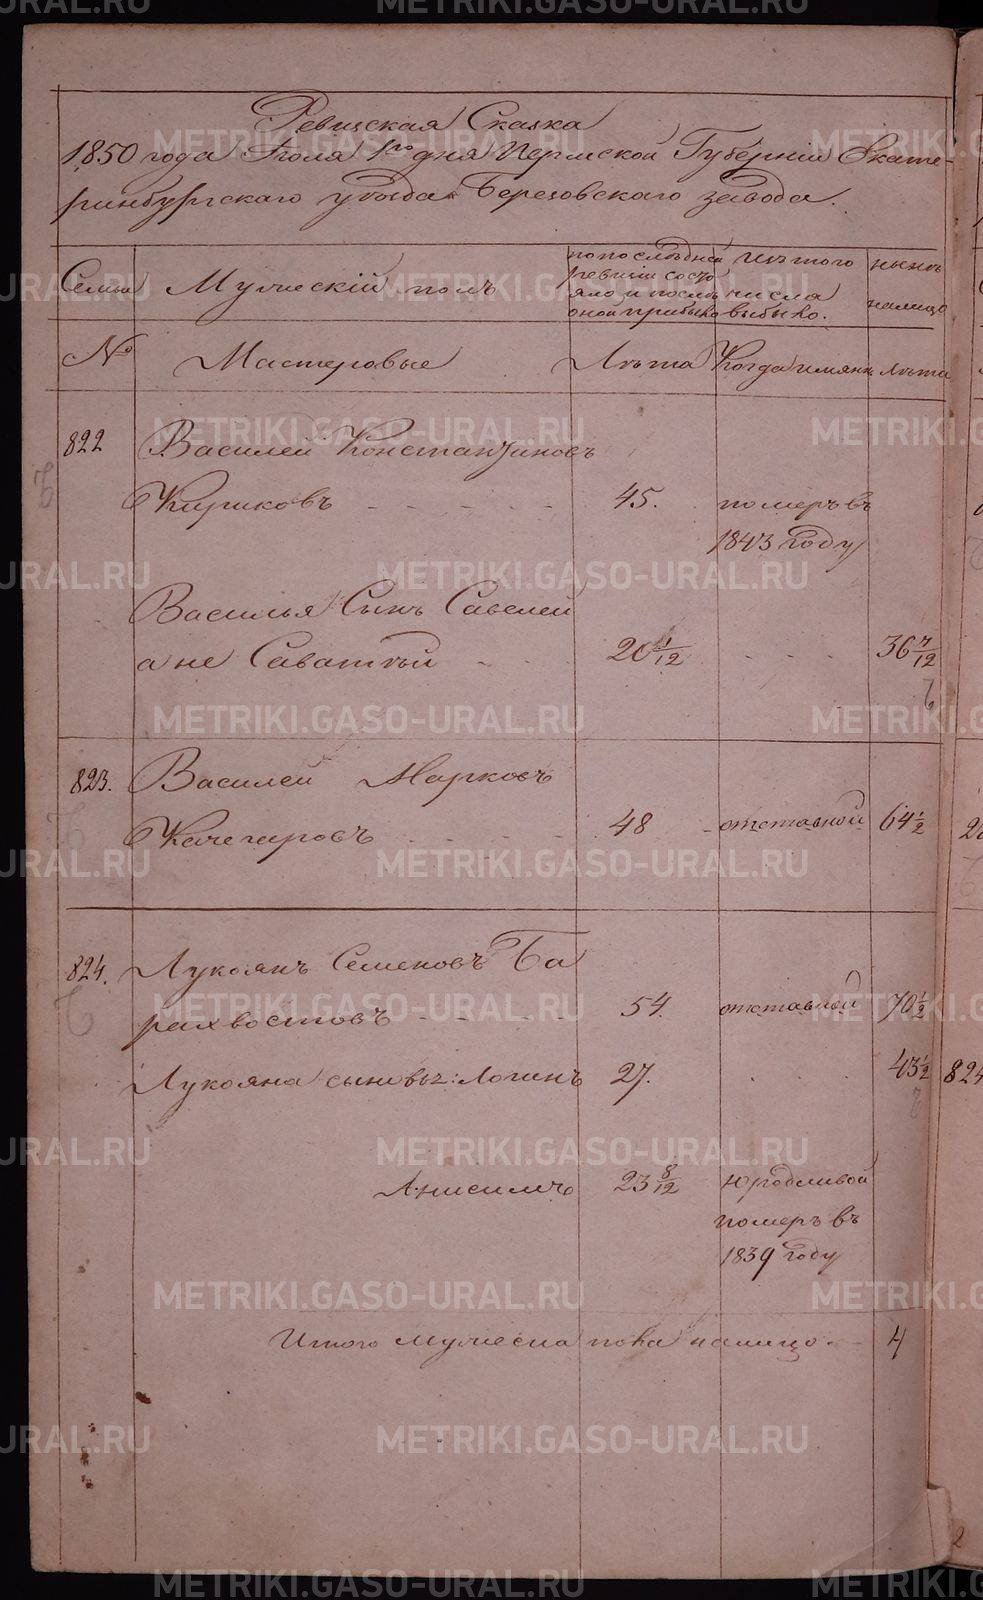 Ревизская Сказка
1850 года Июля 1го дня Пермской Губерніи Екате-
ринбургскаго уѣзда Березовскаго завода.
Семьи
Мужескій полъ
по послѣдней
ревизіи состо
яло и послѣ
оной прибыло
изъ того
числа
выбыло.
нынѣ
налицо
№
Мастеровые
Лѣта
Когда имянно
Лѣта
822
Василей Константиновъ
Кириковъ - - - - - 45. померъ въ
1843 году
Василья Сынъ Савелей
а не Саватѣй - - 20 11/12 - - - 36 7/12
823.
Василей Марковъ
Качегаровъ - - - - 48 - отставной 64 1/2
824.
Лукоянъ Семеновъ Ба
рахвостовъ - - - - 54. отставной 70 1/2
Лукояна сыновья: Логинъ 27. - - - 43 1/2
Анисимъ 23 8/12 юродливой
померъ въ
1839 году
Итого мужеска пола налицо. - 4
824
METRIKI.GASO-URAL.RU